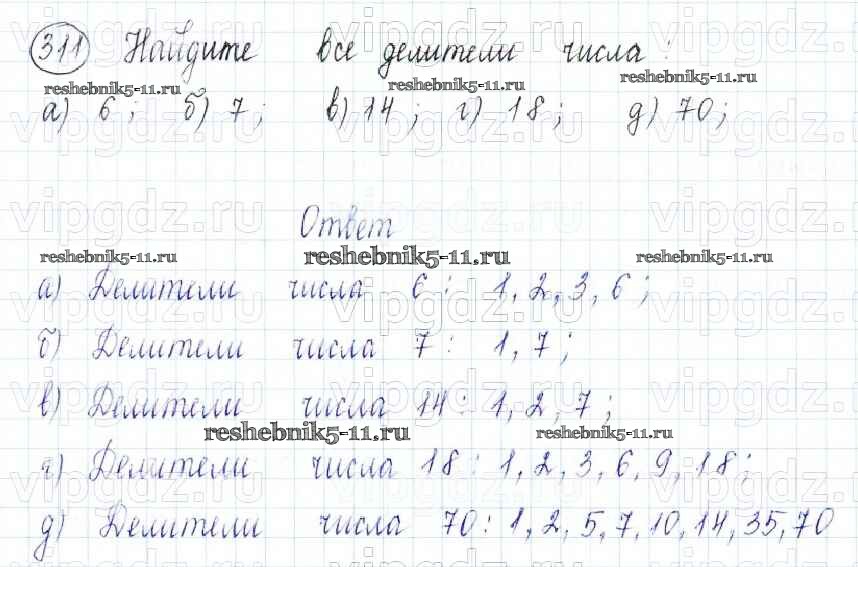 311 Найдите все делители числа:
reshebnik5-11.ru reshebnik5-11.ru reshebnik5-11.ru
а) 6; б) 7; в) 14; г) 18; д) 70;
vipgdz.ru vipgdz.ru vipgdz.ru
Ответ
reshebnik5-11.ru reshebnik5-11.ru reshebnik5-11.ru
а) Делители числа 6: 1, 2, 3, 6;
б) Делители числа 7: 1, 7;
в) Делители числа 14: 1, 2, 7;
reshebnik5-11.ru reshebnik5-11.ru
г) Делители числа 18: 1, 2, 3, 6, 9, 18;
д) Делители числа 70: 1, 2, 5, 7, 10, 14, 35, 70